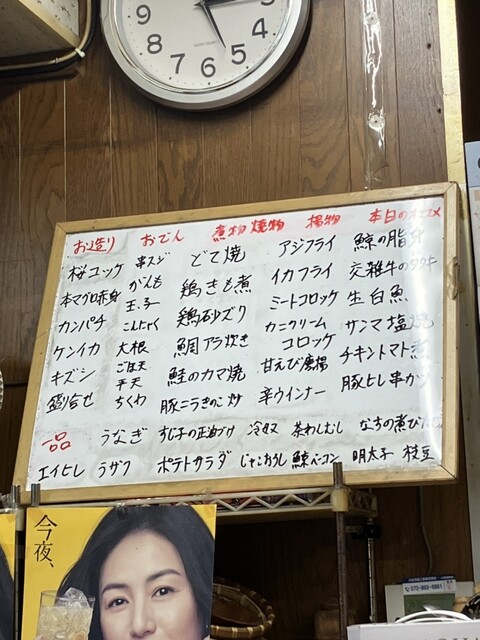 8 7 6 5 4 3
お造り おでん 煮物 焼物 揚物 本日のオススメ
桜ユッケ 串スジ どて焼 アジフライ 鯨の脂身
本マグロ赤身 がんも 鶏きも煮 イカフライ 交雑牛のタタキ
カンパチ 玉子 鶏砂ズリ ミートコロッケ 生白魚
ケンイカ こんにゃく 鯛アラ炊き カニクリームコロッケ サンマ塩焼
キズシ 大根 鮭のカマ焼 甘えび唐揚 チキントマト煮
盛合せ ごぼ天 豚ニラきのこ炒 辛ウインナー 豚ヒレ串カツ
平天
ちくわ
一品 うなぎ すじ子の正油づけ 冷奴 茶わんむし なすの煮びたし
エイヒレ うザク ポテトサラダ じゃこおろし 鯨ベーコン 明太子 枝豆
今夜、